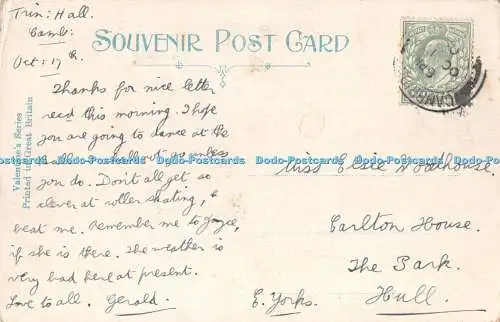 Trin: Hall.
Camb:
Oct: 17th.
SOUVENIR POST CARD
Thanks for nice letter
recd this morning. I hope
you are going to dance at the
unless
you do. Don't all get so
clever at roller skating, &
beat me. Remember me to Joyce,
if she is there. The weather is
very bad here at present.
Love to all. Gerald.
Valentine's Series
Printed in Great Britain
Miss Elsie Woodhouse.
Carlton House.
The Park.
Hull.
E. Yorks.
Dodo-Postcards Dodo-Postcards Dodo-Postcards Dodo-Postcards Dodo-Postcards Dodo-Postcards